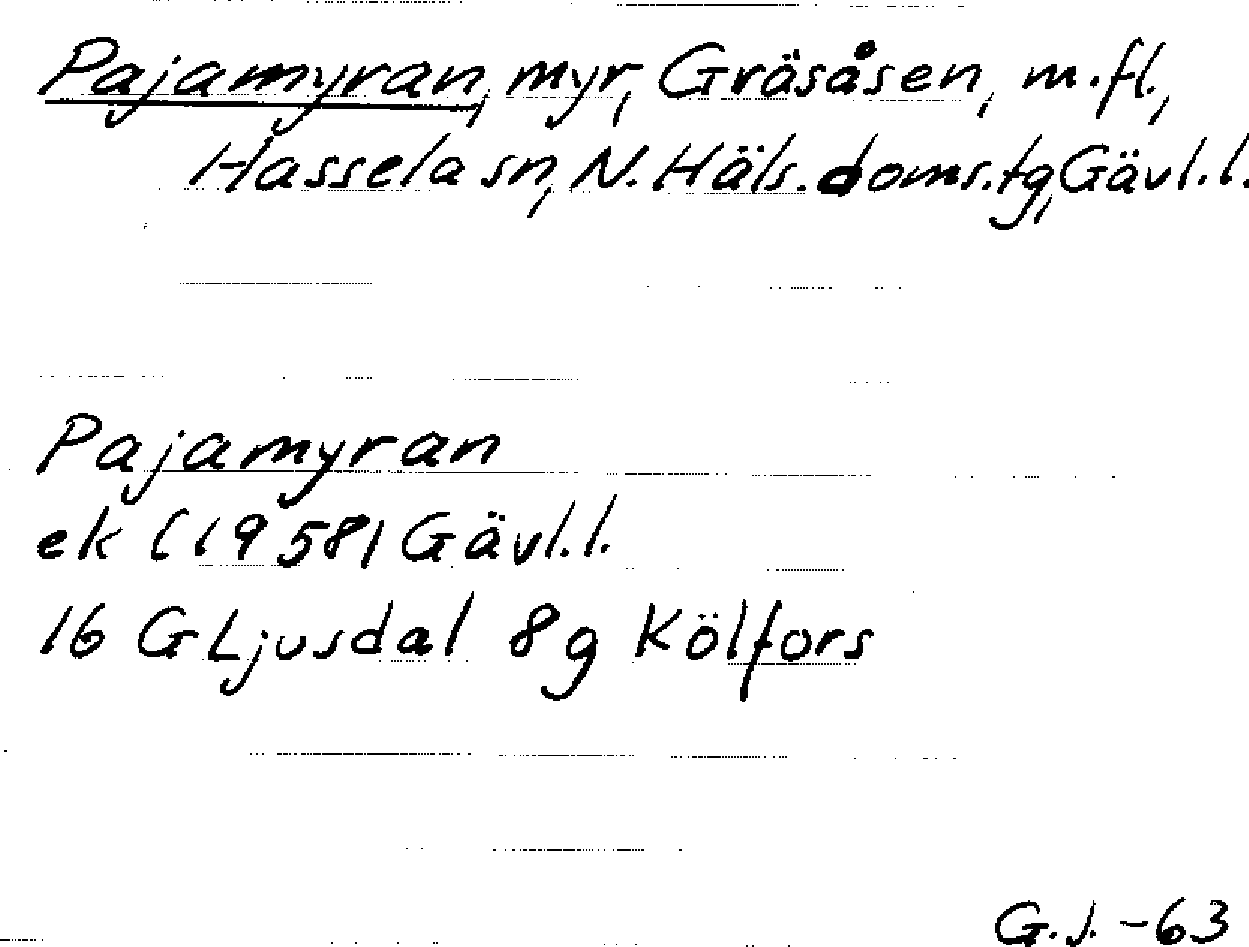 Pajamyran, myr, Gräsåsen, m.fl.,
Hassela sn, N. Häls. doms.tg, Gävl.l.
Pajamyran
ek (1958) Gävl.l.
16 G Ljusdal 8g Kölfors
G.J. -63